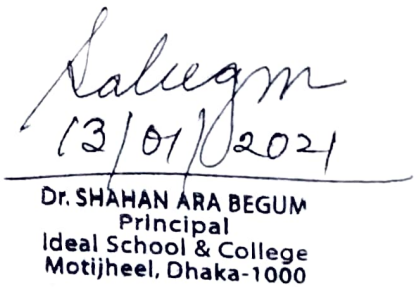 Sabegm
13/01/2021
Dr. SHAHAN ARA BEGUM
Principal
Ideal School & College
Motijheel, Dhaka-1000